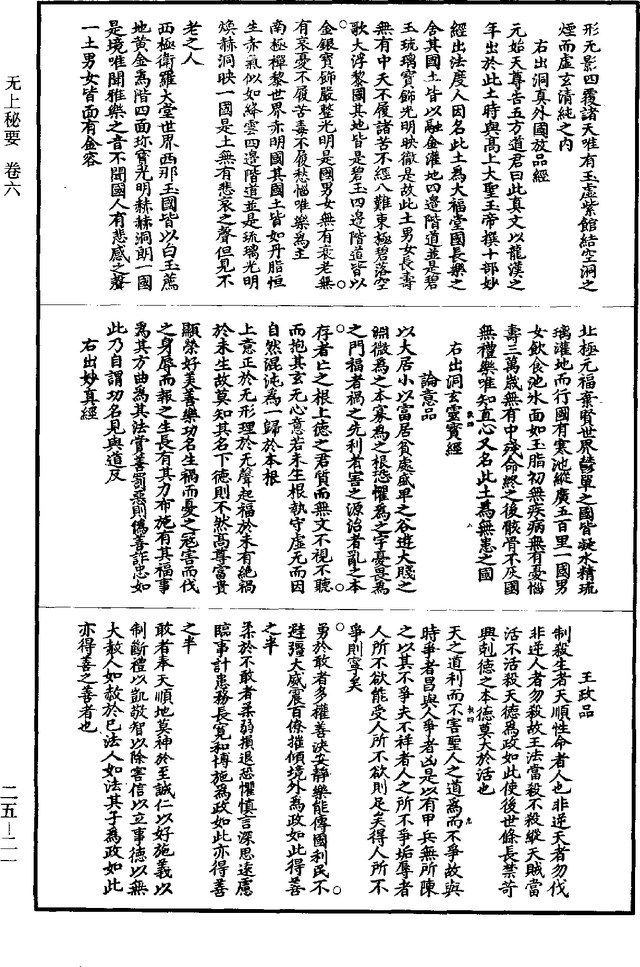 形无影四覆諸天唯有玉虛紫館結空洞之
煙而虛玄清純之內
右出洞真外國放品經
元始天尊告五方道君曰此真文以龍漢之
年出於此土時與高上大聖玉帝撰十部妙
經出法度人因名此土為大福堂國長樂之
舍其國土皆以融金灌地四邊階道並是碧
玉琉璃寶飾光明映徹是故此土男女長壽
無有中夭不履諸苦不經八難東極碧落空
歌大浮黎國其地皆是碧玉四邊階道皆以
金銀寶飾嚴整光明是國男女無有衰老無
有哀憂不履苦毒不履愁惱唯樂為主
南極禪黎世界赤明國其國土皆如丹脂恒
生赤氣似如絳雲四邊階道並是琉璃光明
煥赫洞映一國是土無有悲哀之聲但見不
老之人
西極衛羅大堂世界西那玉國皆以白玉薦
地黃金為階四面珎寶光明赫赫洞朗一國
是境唯聞雅樂之音不聞國人有悲慼之聲
一土男女皆面有金容
北極元福棄賢世界鬱單之國皆凝水精琉
璃灌地而行國有寒池縱廣五百里一國男
女飲食池水面如玉脂初無疾病無有憂惱
壽三萬歲無有中殘命終之後骸骨不灰國
無禮樂唯知直心又名此土為無恚之國
右出洞玄靈寶經
論意品
以大居小以富居貧處盛卑之谷遊大賤之
淵微為之本寡為之根恐懼為之宇憂畏為
之門福者禍之先利者害之源治者亂之本
存者亡之根上德之君質而無文不視不聽
而抱其玄无心意若未生根執守虛无而因
自然混沌為一歸於本根
上意正於无形理於无聲起福於未有絕禍
於未生故莫知其名下德則不然高尊富貴
顯榮好美善樂功名生禍而憂之冦害而伐
之身辱而報之生長有其力布施有其福事
為其方曲為其法賞善罰惡則偽善詐忠如
此乃自謂功名見與道反
右出妙真經
王政品
制殺生者天順性命者人也非逆天者勿伐
非逆人者勿殺故王法當殺不殺縱天賊當
活不活殺天德為政如此使後世條長禁苛
興剋德之本德莫大於活也
天之道利而不害聖人之道為而不爭故與
時爭者昌與人爭者凶是以有甲兵無所陳
之以其不爭夫不祥者人之所不爭垢辱者
人所不欲能受人所不欲則足矣得人所不
爭則寧矣
勇於敢者多權善決安靜樂能傳國利民不
避彊大威震百僚摧傾境外為政如此得善
之半
柔於不敢者柔弱損退恐懼慎言深思遠慮
臨事計患務長寬和博施為政如此亦得善
之半
敢者奉天順地莫神於至誠仁以好施義以
制斷禮以凱敬智以除害信以立事德以無
大赦人如赦於己法人如法其子為政如此
亦得善之善者也
无上秘要 卷六
二五—二一